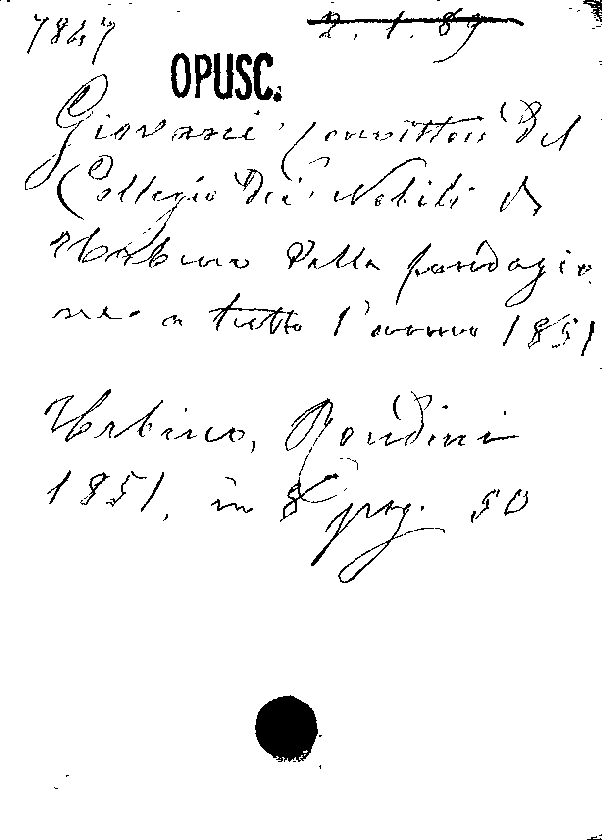 7847 2.1.89
OPUSC.
Giovani convittori del
Collegio dei Nobili di
Urbino dalla fondazio
ne a tutto l'anno 1851
Urbino, Rondini
1851, in 8° pag. 50